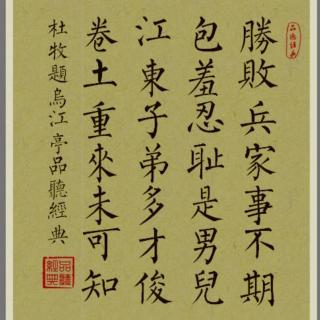 勝敗兵家事不期
包羞忍耻是男兒
江東子弟多才俊
卷土重來未可知
杜牧題烏江亭品聽經典